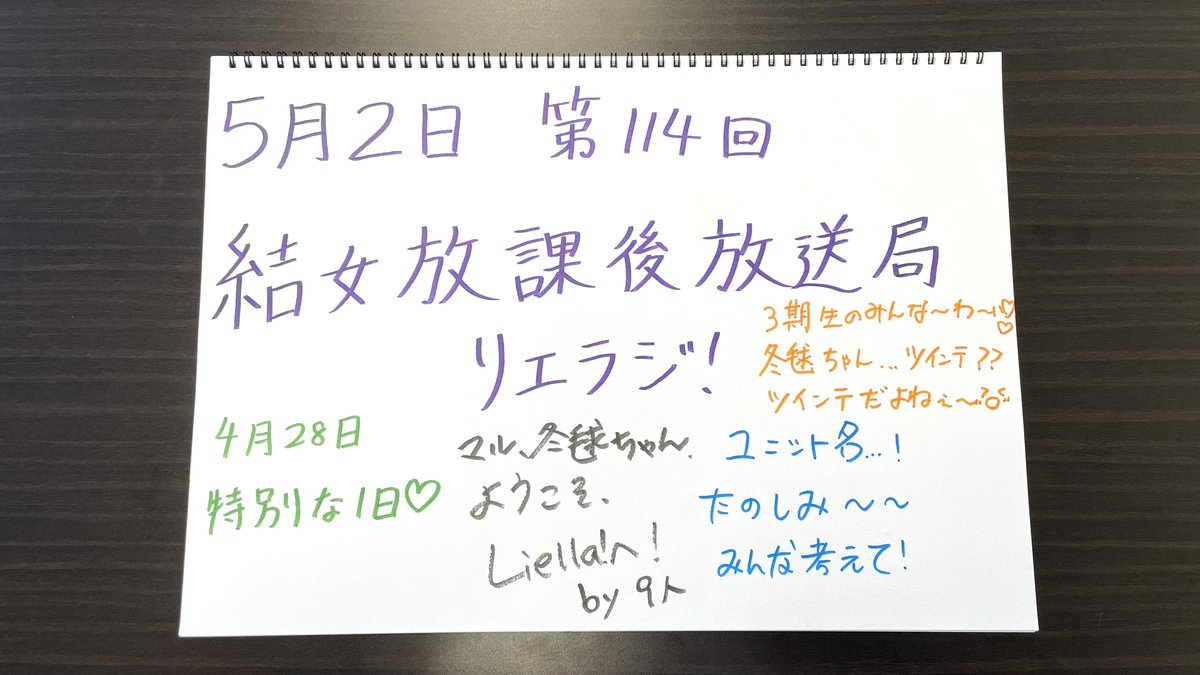 5月2日 第114回
結女放課後放送局
リエラジ!
3期生のみんな〜わ〜♡♡
冬毬ちゃん...ツインテ??
ツインテだよねぇ〜
4月28日
特別な1日♡
マル、冬毬ちゃん、
ようこそ、
Liella!へ!
by 9人
ユニット名...!
たのしみ〜〜
みんな考えて!